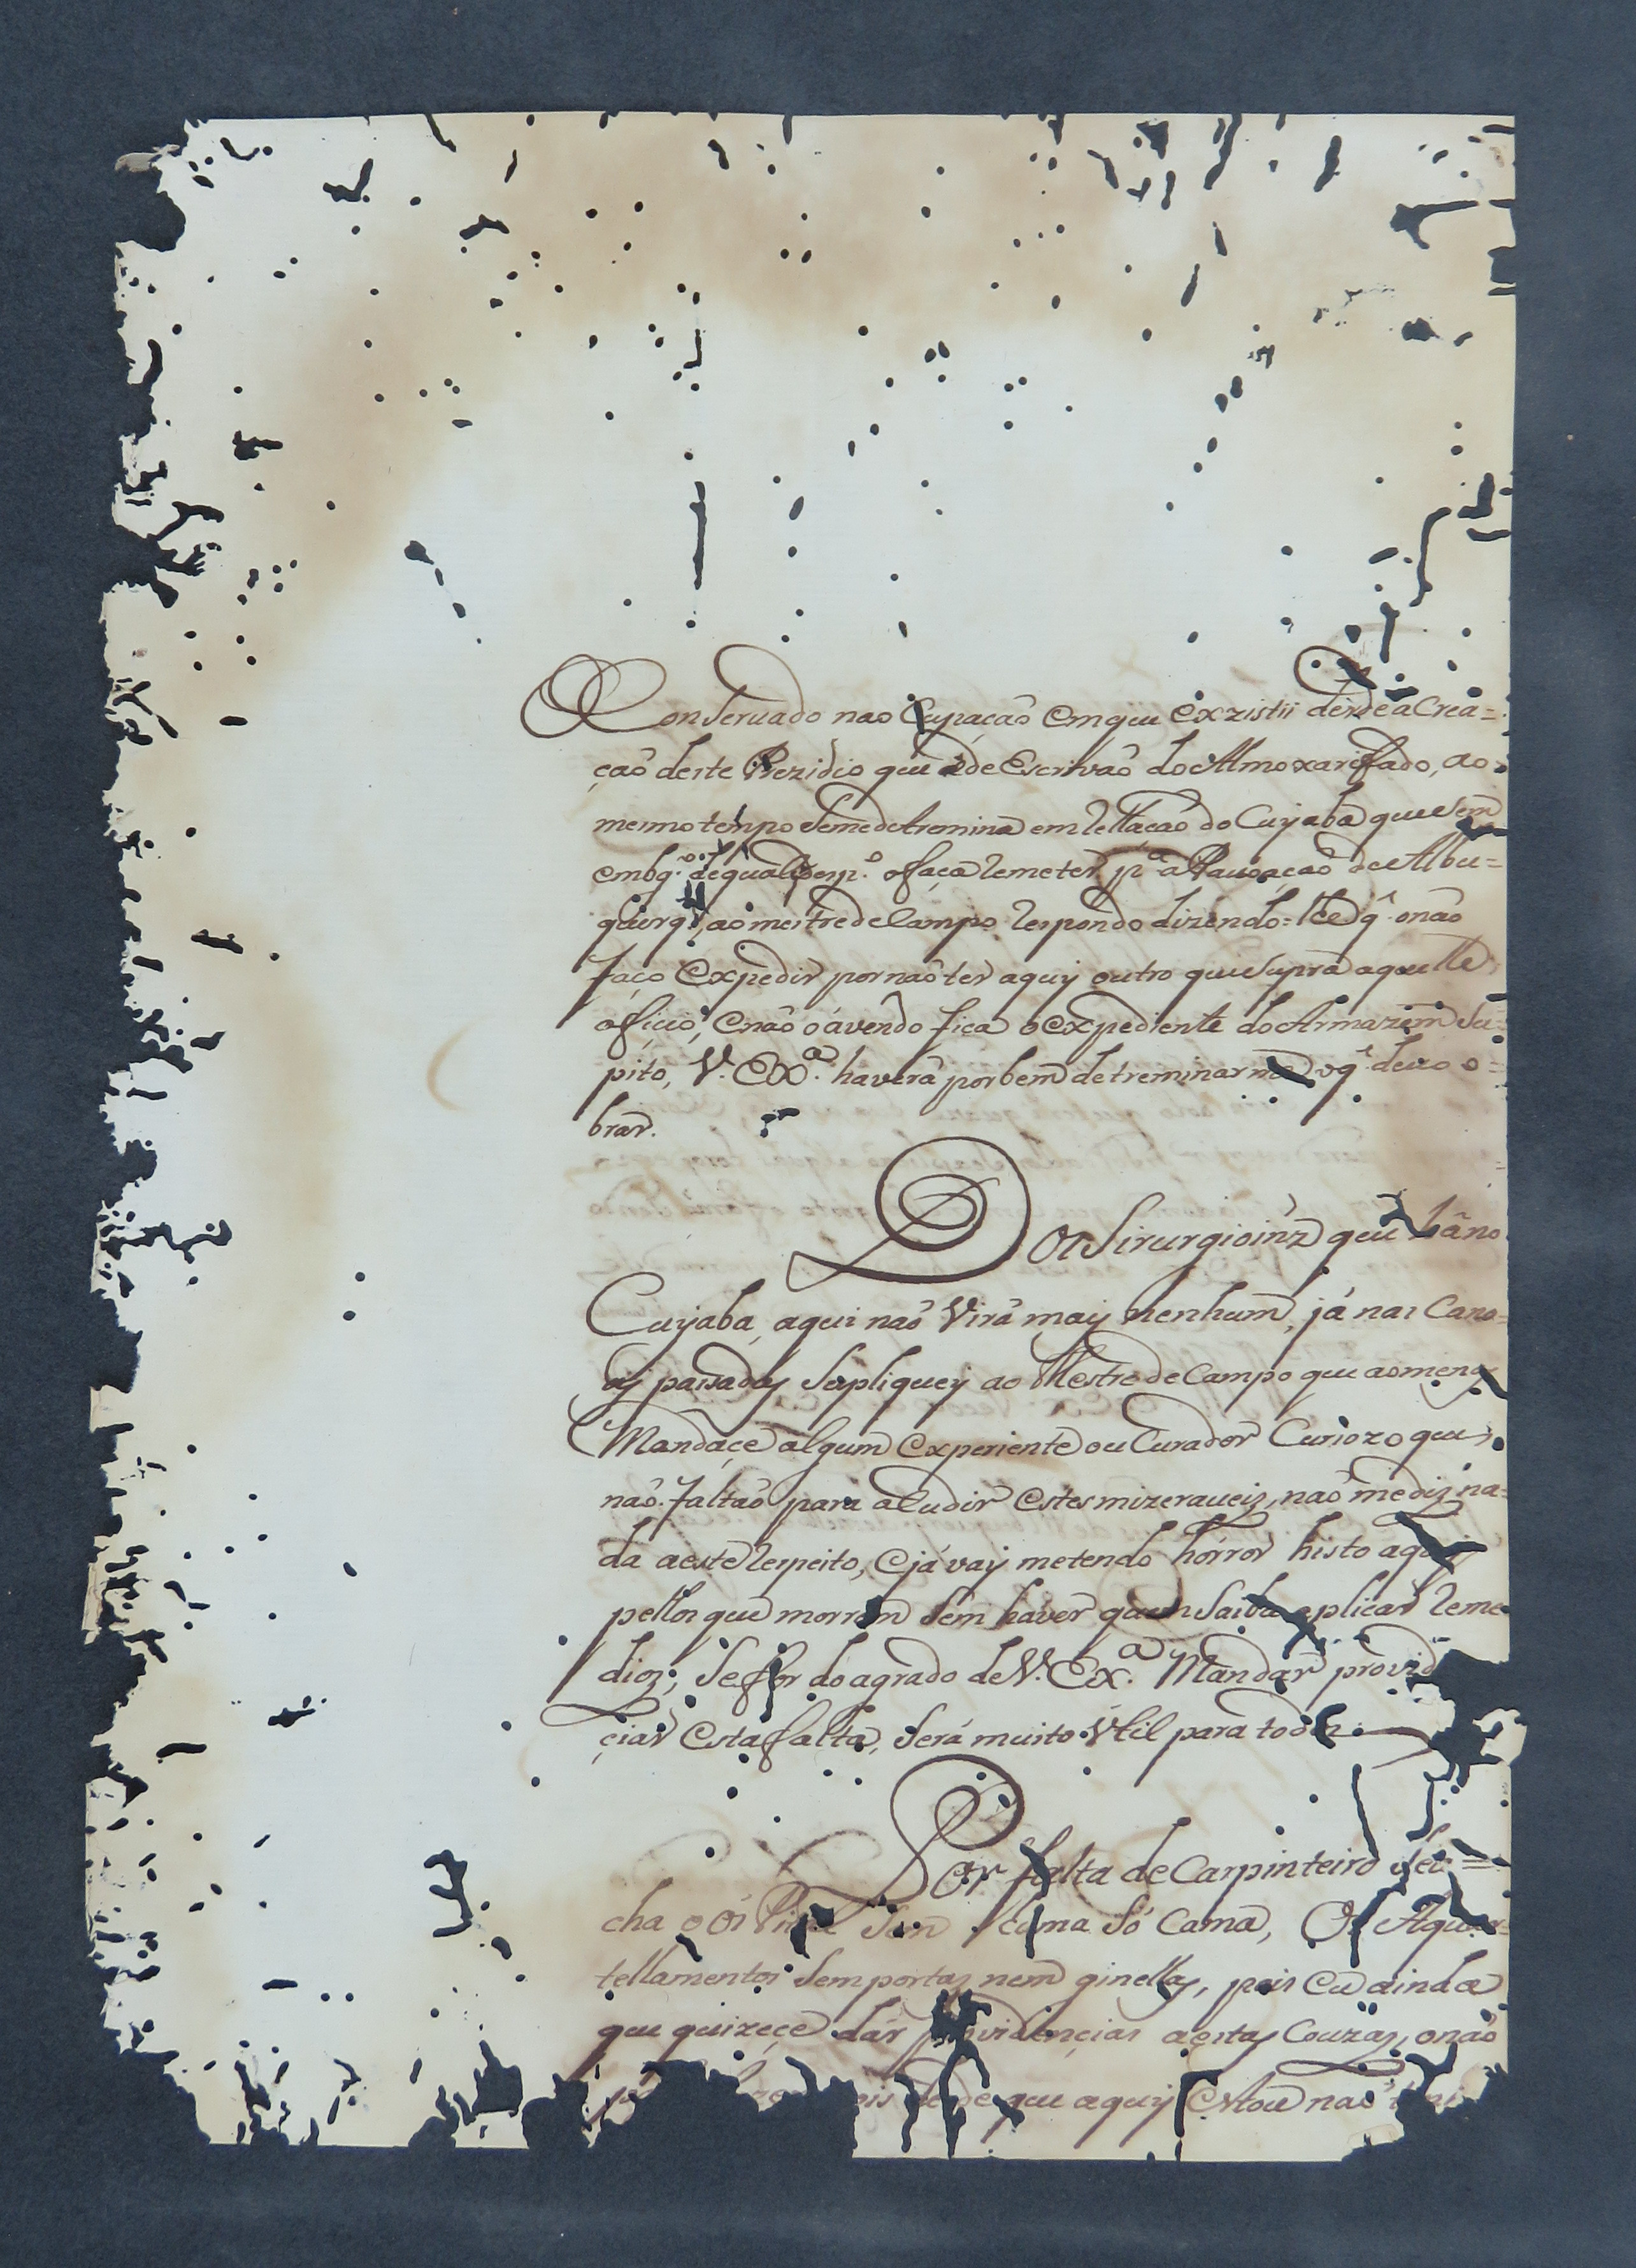 Conseruado nao Cupação em que exzistii desde a Crea=
ção deste Prezidio que é de Escrivaõ do Almoxariffado, ao
mesmo tempo se me detremina em Rellação do Cuyabá que sem
embg.º de qual q.r emp.º o faça Remeter p.ª a Pauoação de Albu=
querq.e, ao mestre de Campo Respondo dizendo= lhe q̃ o não
faço Expedir por naõ ter aquy outro que supra aquelle
oficio, e não o avendo fica o expediente do Armazem su=
pito, V. EXª. haverá por bem detreminar me o q̃ devo o=
brar.
Os Sirurgioins que há no
Cuyaba, aqui naõ Virá mais nenhum, já nas Cano=
as passadas Supliquey ao Mestre de Campo que ao menos
Mandaçe algum Experiente ou Curador Curiozo que
naõ faltaõ para acudir estes mizeraueis, naõ me diz na=
da a este Respeito, e já vay metendo hórror histo aqui
pellos que morrem sem haver quem saiba aplicar Reme
dios; Se ffor do agrado de V. Exª. Mandar provid
çiar esta falta, será muito Util para todos.
Por falta de Carpinteiro se a=
cha o Os sem cama só Cama, Os Aquar=
tellamentos sem portas nem ginellas, pois Eu ainda
que quizeçe dár providençias a estas Couzas, o não
pois desde que aquy estou naõ